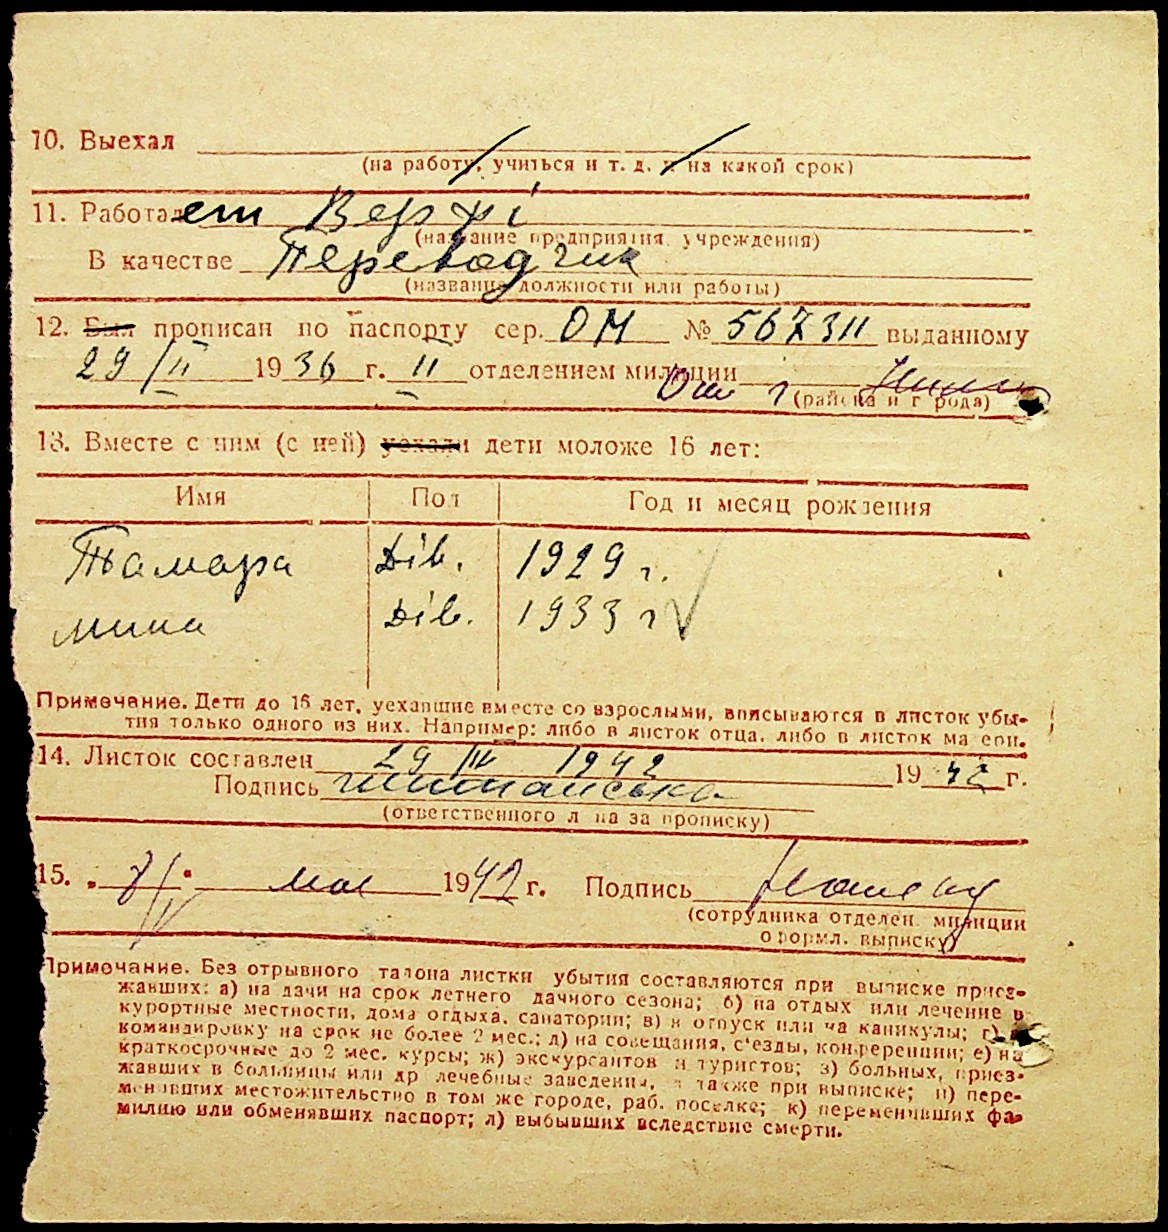 10. Выехал
(на работу, учиться и т. д. и на какой срок)
11. Работает Верфі
(название предприятия, учреждения)
В качестве Переводчик
(название должности или работы)
12. Был прописан по паспорту сер. ОМ № 567311 выданному
29/II 1936 г. II отделением милиции
(района и города)
13. Вместе с ним (с ней) уехали дети моложе 16 лет:
Имя Пол Год и месяц рождения
Тамара Дів. 1929 г.
Нина Дів. 1933 г
Примечание. Дети до 16 лет, уехавшие вместе со взрослыми, вписываются в листок убы-
тия только одного из них. Например: либо в листок отца, либо в листок матери.
14. Листок составлен 29 IV 1942 1942 г.
Подпись
(ответственного лица за прописку)
15. „8/V“ мая 1942 г. Подпись
(сотрудника отделен. милиции
оформл. выписку)
Примечание. Без отрывного талона листки убытия составляются при выписке приез-
жавших: а) на дачи на срок летнего дачного сезона; б) на отдых или лечение в
курортные местности, дома отдыха, санатории; в) в отпуск или на каникулы; г) в
командировку на срок не более 2 мес.; д) на совещания, с'езды, конференции; е) на
краткосрочные до 2 мес. курсы; ж) экскурсантов и туристов; з) больных, приез-
жавших в больницы или др лечебные заведения, а также при выписке; и) пере-
менивших местожительство в том же городе, раб. поселке; к) переменивших фа-
милию или обменявших паспорт; л) выбывших вследствие смерти.